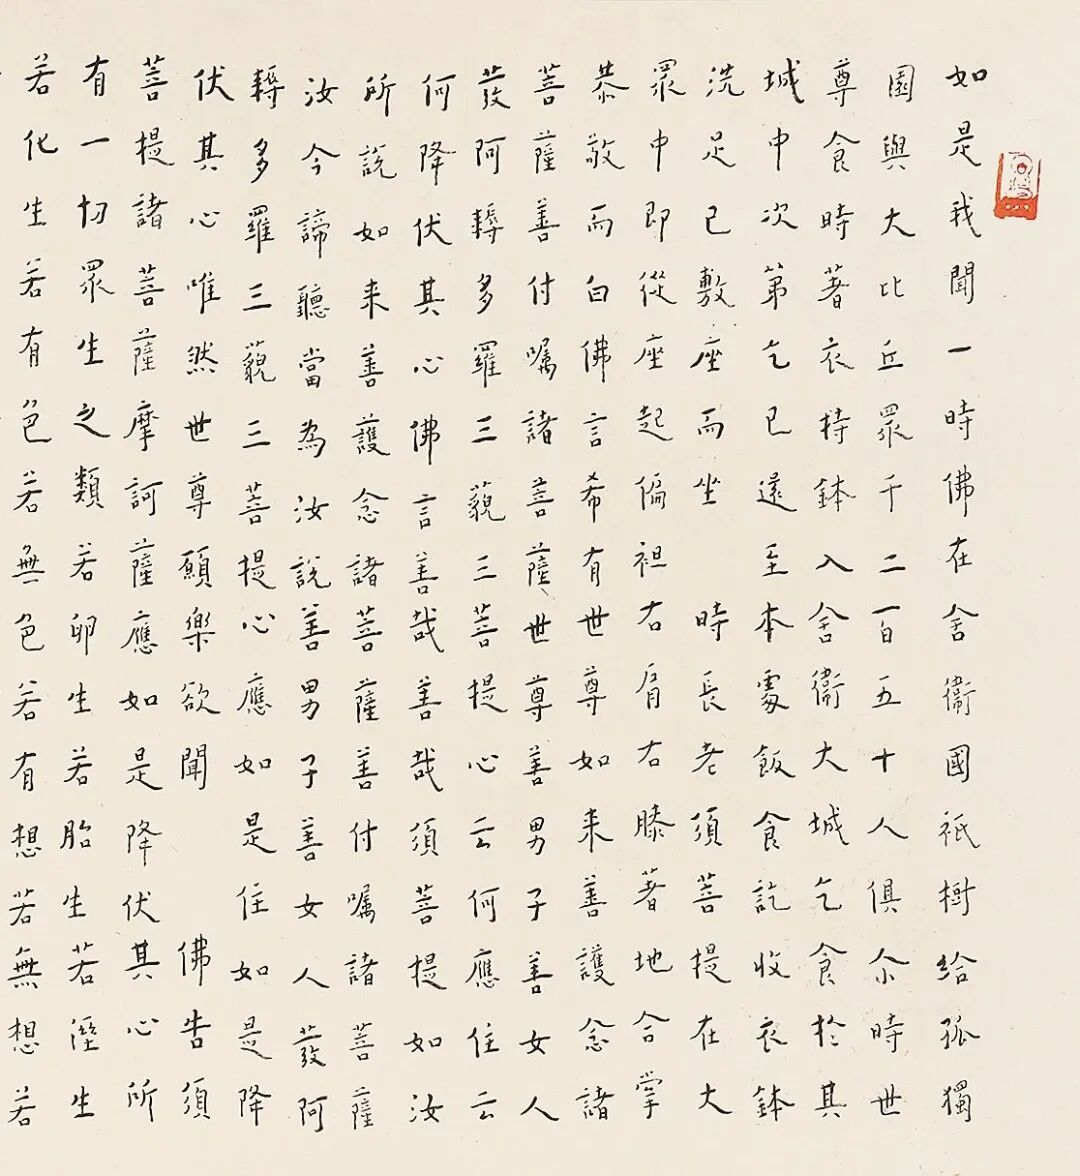 如是我聞一時佛在舍衛國祇樹給孤獨
園與大比丘眾千二百五十人俱尒時世
尊食時著衣持鉢入舍衛大城乞食於其
城中次第乞已還至本處飯食訖收衣鉢
洗足已敷座而坐　時長老須菩提在大
眾中即從座起偏袒右肩右膝著地合掌
恭敬而白佛言希有世尊如来善護念諸
菩薩善付嘱諸菩薩世尊善男子善女人
發阿耨多羅三藐三菩提心云何應住云
何降伏其心佛言善哉善哉須菩提如汝
所說如来善護念諸菩薩善付嘱諸菩薩
汝今諦聽當為汝說善男子善女人發阿
耨多羅三藐三菩提心應如是住如是降
伏其心唯然世尊願樂欲聞　佛告須
菩提諸菩薩摩訶薩應如是降伏其心所
有一切眾生之類若卵生若胎生若溼生
若化生若有色若無色若有想若無想若